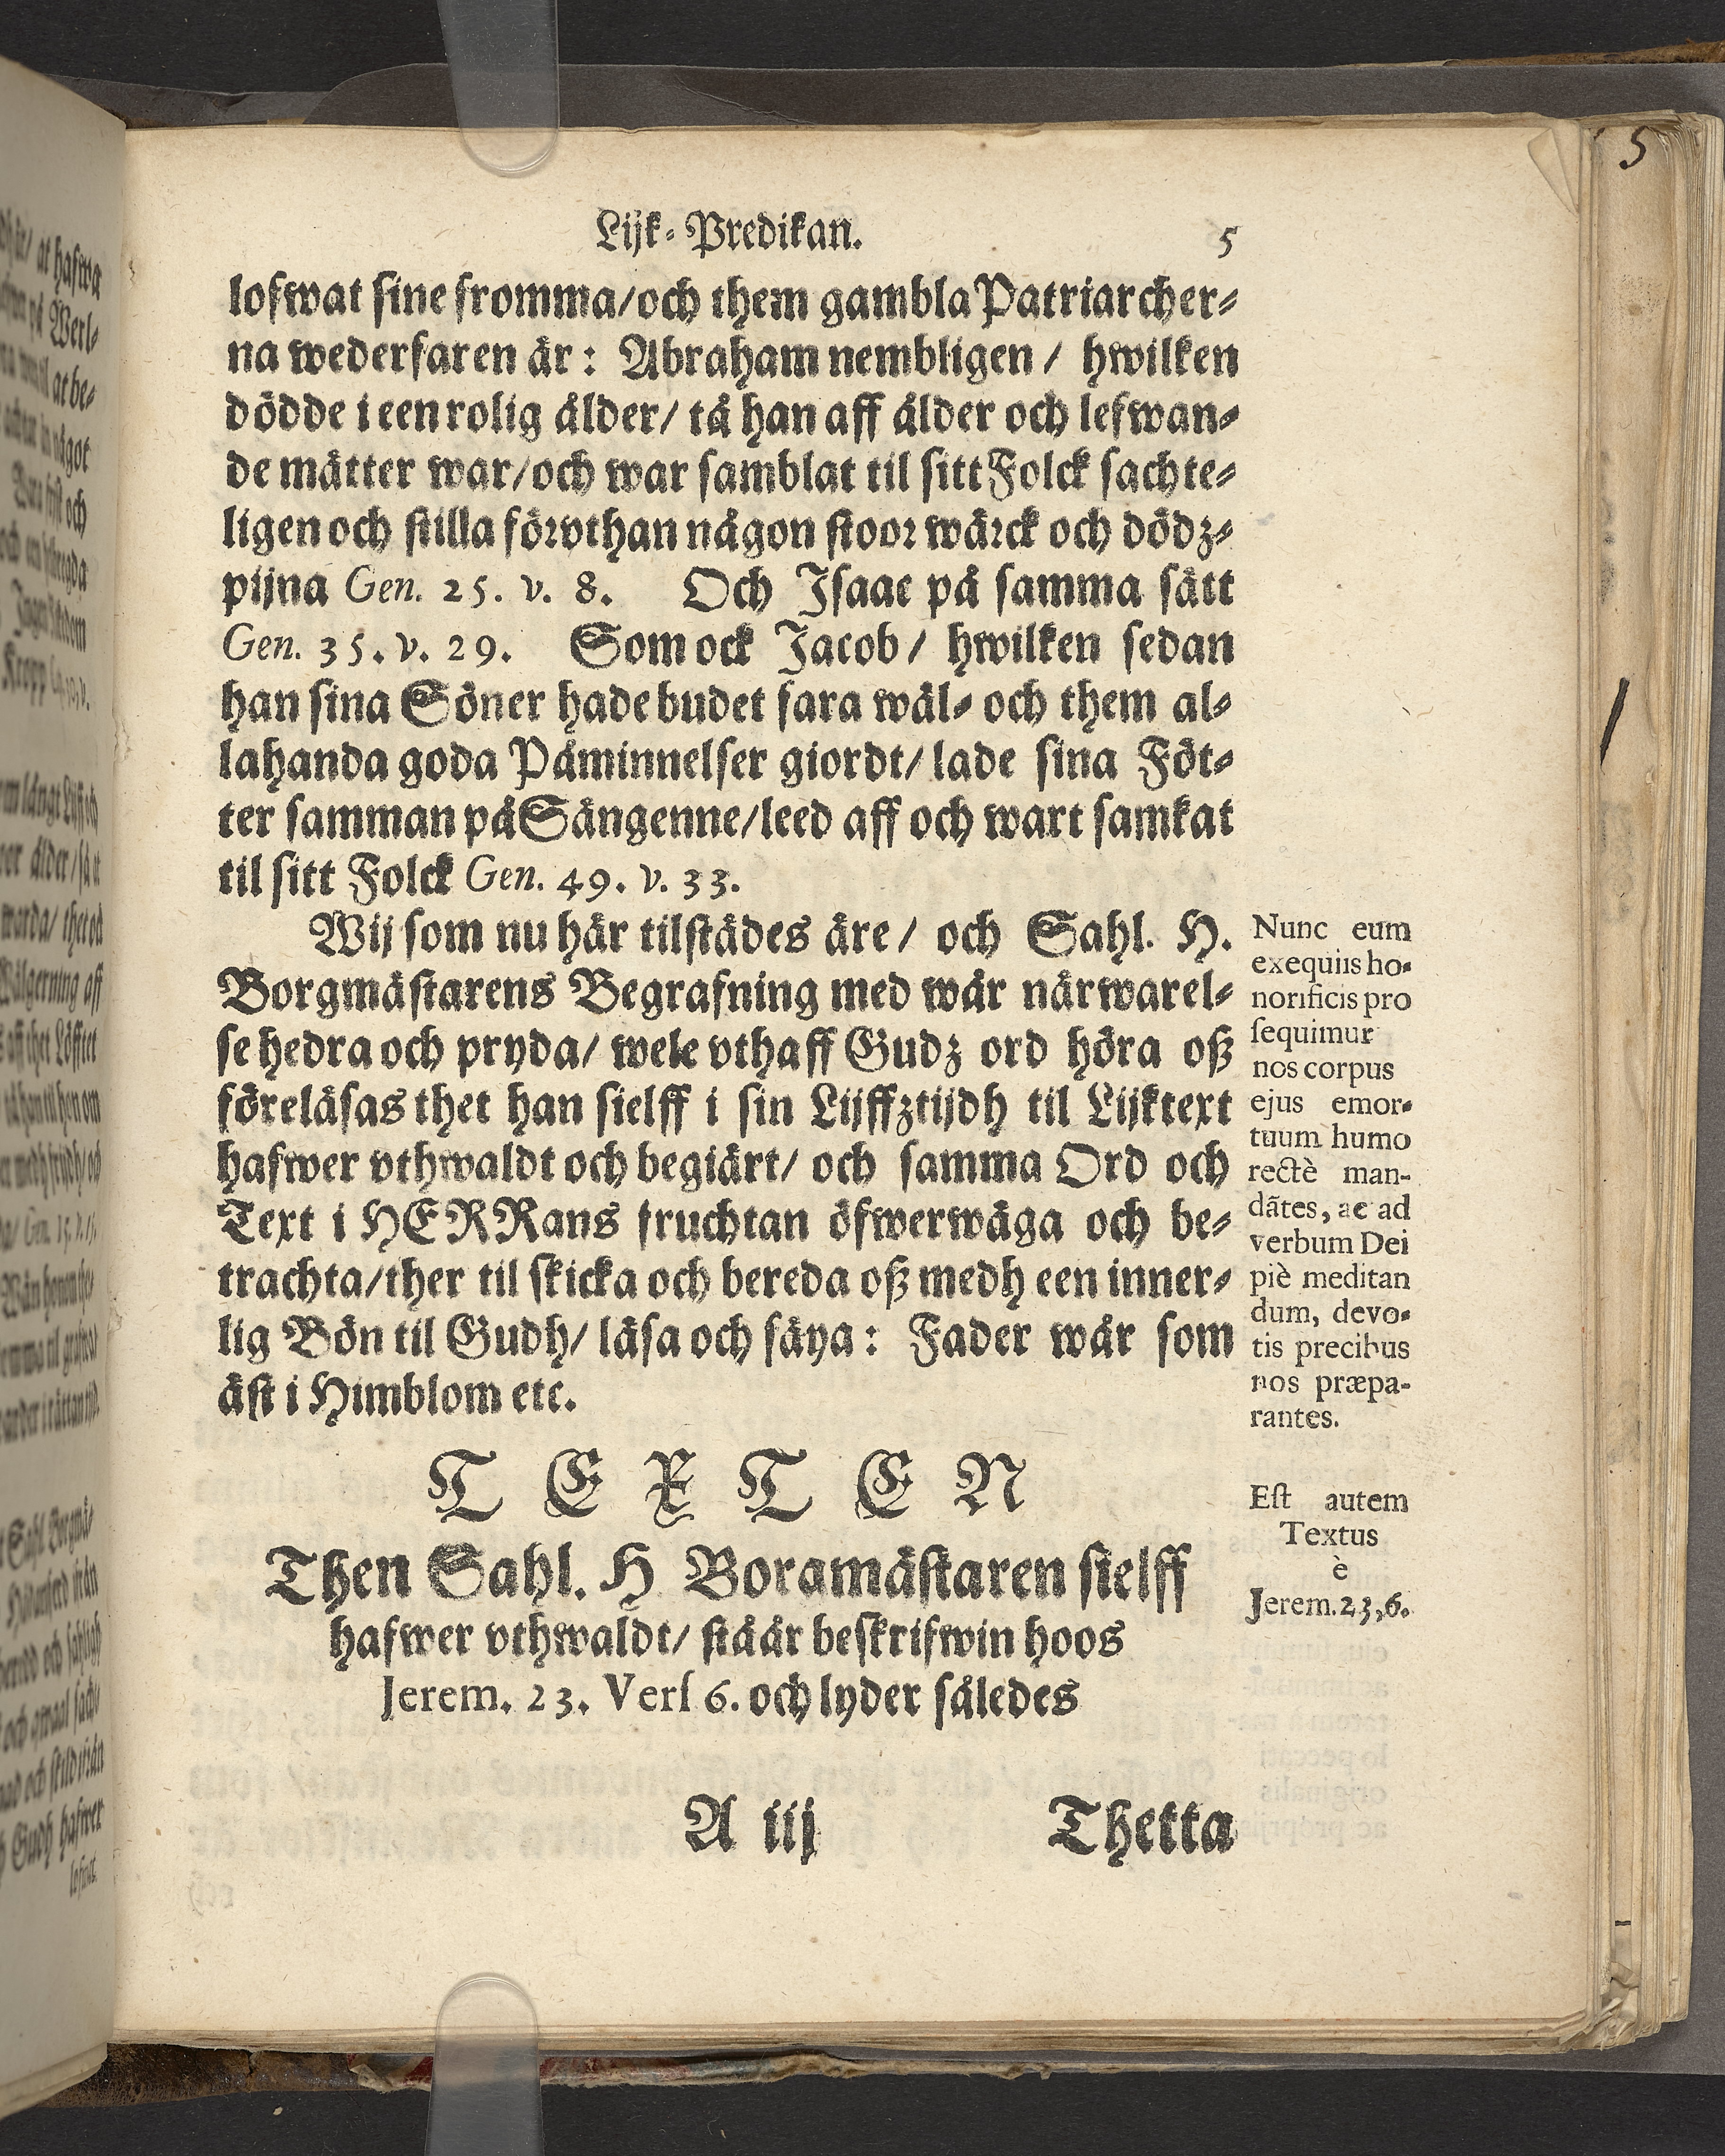 Lijk-Predikan. 5
lofwat sine fromma/och them gambla Patriarcher-
na wederfaren är: Abraham nembligen / hwilken
dödde i een rolig ålder/ tå han aff ålder och lefwan-
de mätter war/och war samblat til sitt Folck sachte-
ligen och stilla förvthan någon stoor wärck och dödz-
pijna Gen. 25. v. 8. Och Isaac på samma sätt
Gen. 35. v. 29. Som ock Jacob / hwilken sedan
han sina Söner hade budet fara wäl- och them al-
lahanda goda Påminnelser giordt/ lade sina Föt-
ter samman på Sängenne/leed aff och wart samkat
til sitt Folck Gen. 49. v. 33.
Wij som nu här tilstädes äre / och Sahl. H.
Borgmästarens Begrafning med wår närwarel-
se hedra och pryda/ wele vthaff Gudz ord höra oß
föreläsas thet han sielff i sin Lijffztijdh til Lijktext
hafwer vthwaldt och begiärt/ och samma Ord och
Text i HERRans fruchtan öfwerwäga och be-
trachta/ther til skicka och bereda oß medh een inner-
lig Bön til Gudh/ läsa och säya: Fader wår som
äst i Himblom etc.
Nunc eum
exequiis ho-
norificis pro
sequimur
nos corpus
ejus emor-
tuum humo
rectè man-
dãtes, ac ad
verbum Dei
piè meditan
dum, devo-
tis precibus
nos præpa-
rantes.
TEXTEN
Then Sahl. H Boramästaren sielff
hafwer vthwaldt/ ståår beskrifwin hoos
Jerem. 23. Vers 6. och lyder således
Est autem
Textus
è
Jerem.23,6.
A iij Thetta
5